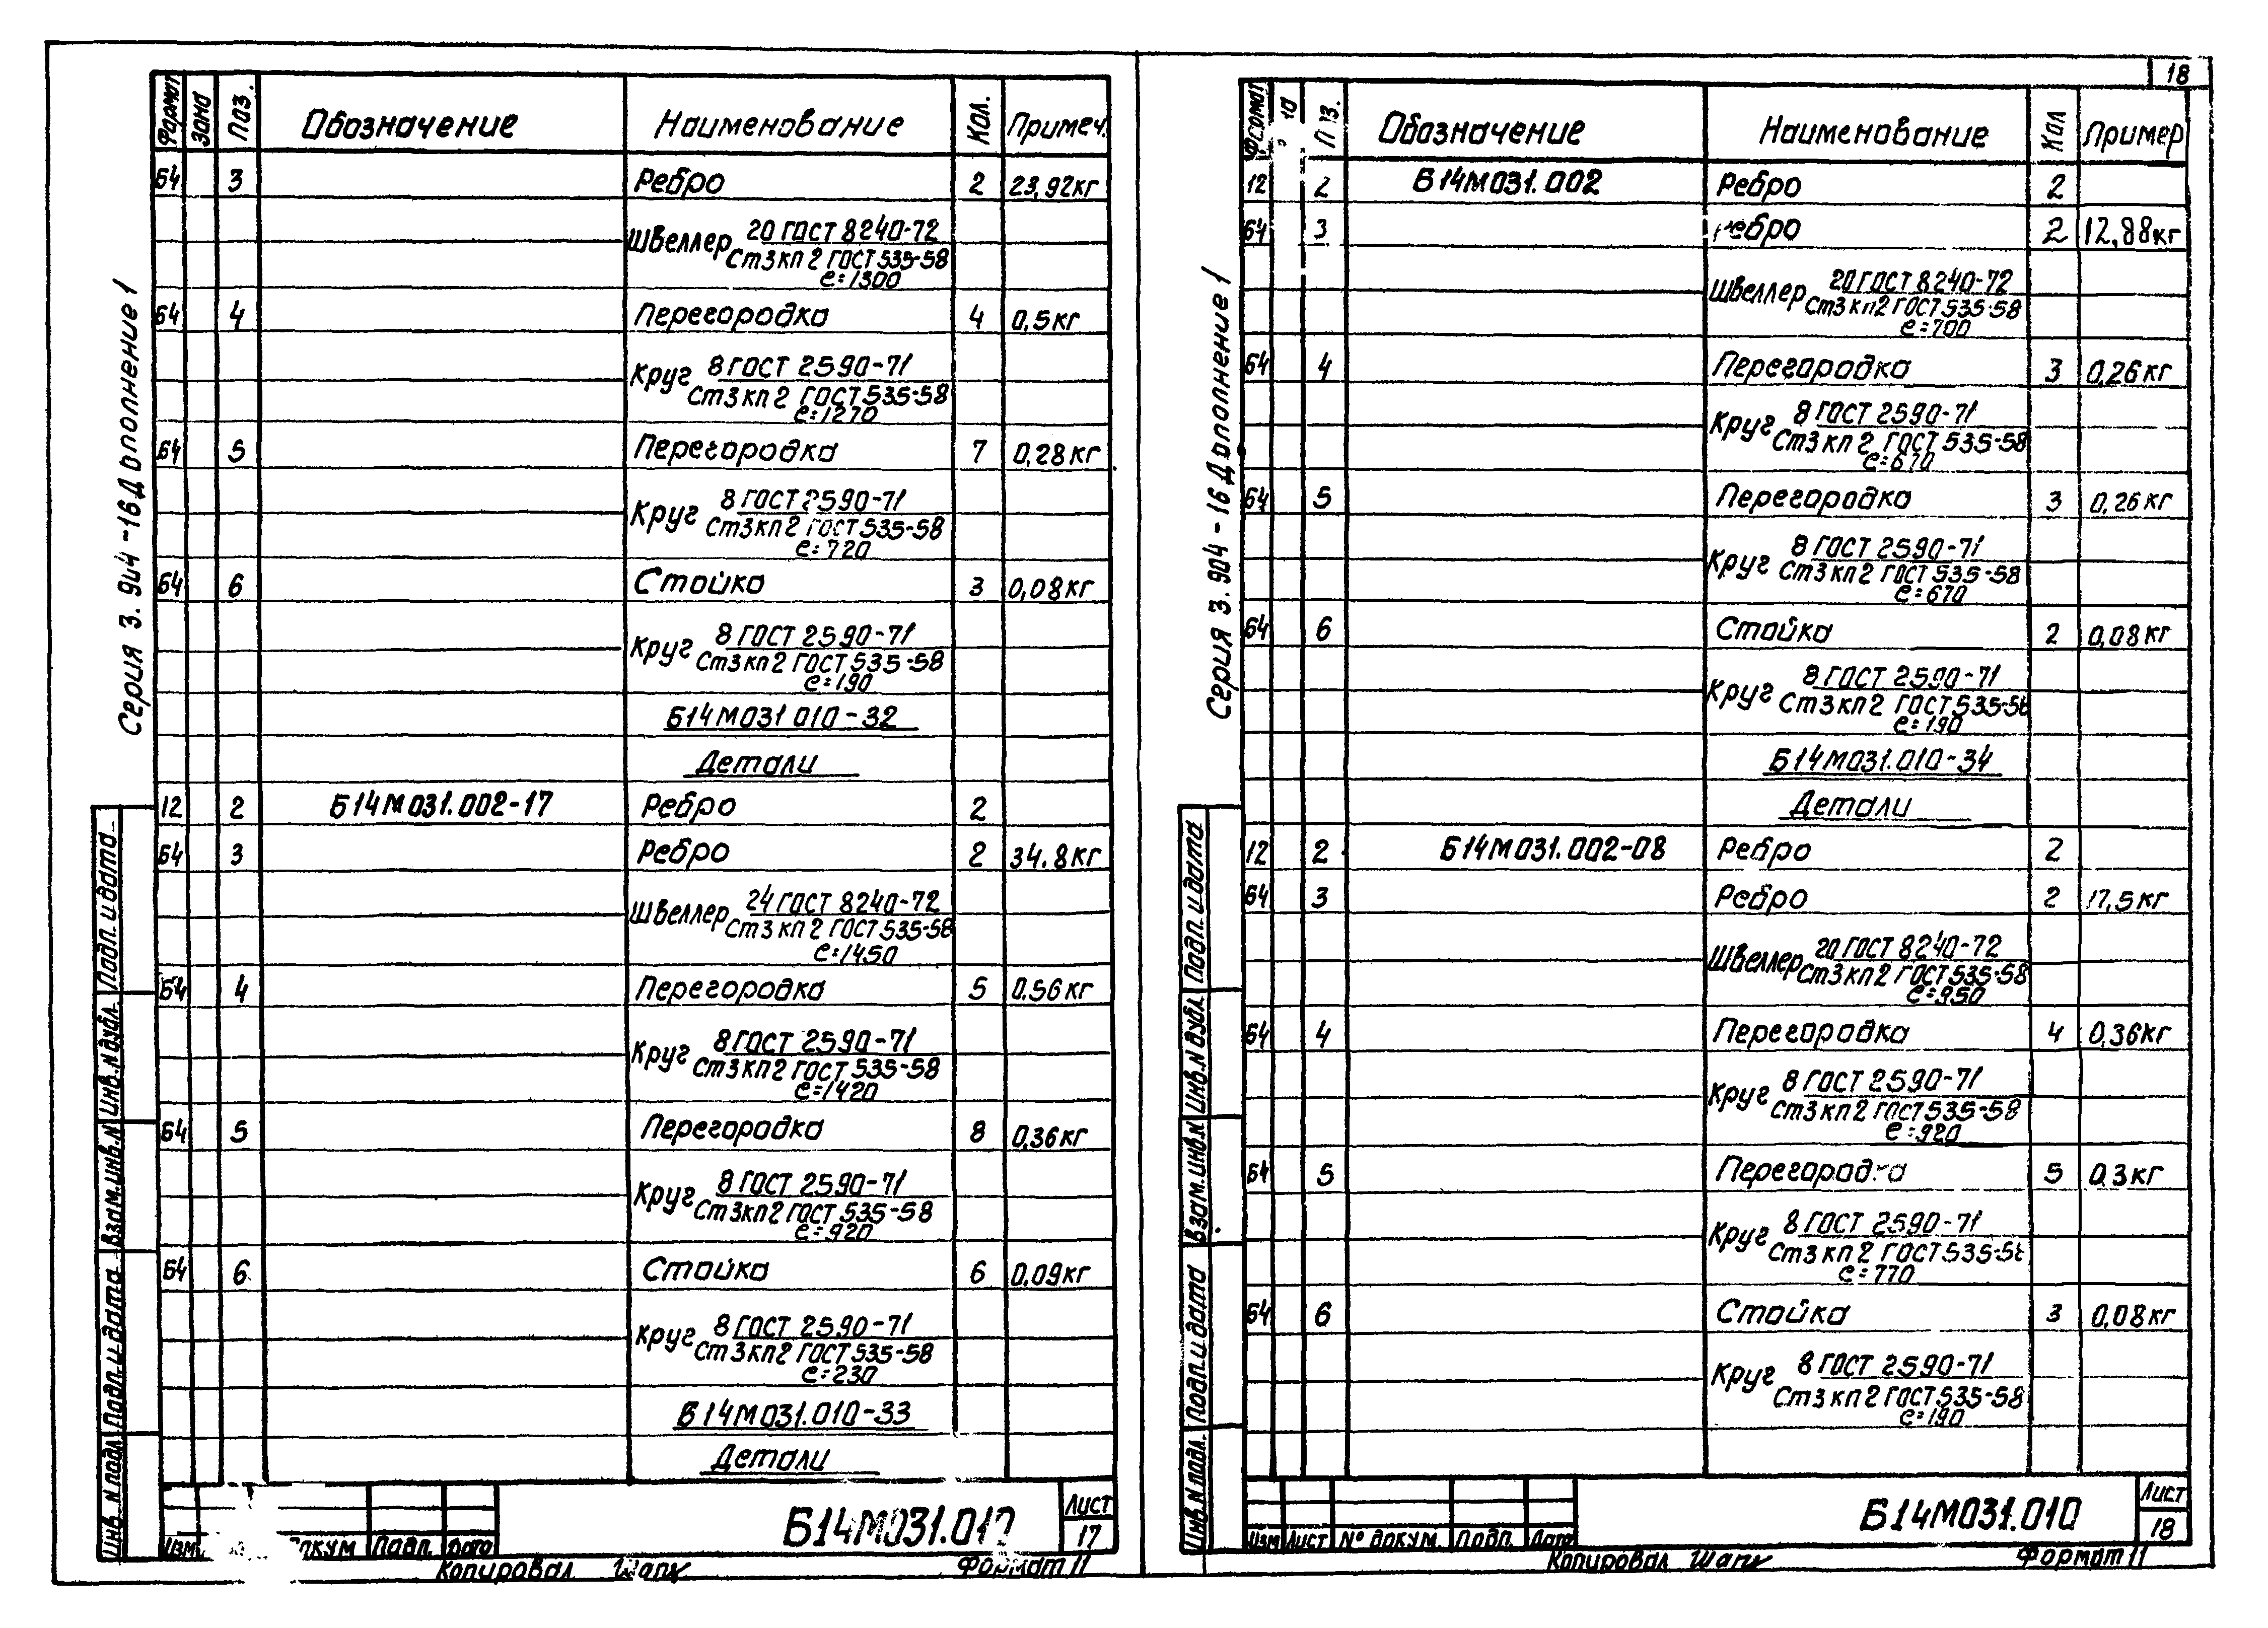 18
Серия 3.904-16 Дополнение 1
Формат Зона Поз. Обозначение Наименование Кол. Примеч.
Б4 3 Ребро 2 23,92кг
Швеллер 20 ГОСТ 8240-72
Ст3кп2 ГОСТ 535-58
е=1300
Б4 4 Перегородка 4 0,5кг
Круг 8 ГОСТ 2590-71
Ст3кп2 ГОСТ 535-58
е=1270
Б4 5 Перегородка 7 0,28кг
Круг 8 ГОСТ 2590-71
Ст3кп2 ГОСТ 535-58
е=720
Б4 6 Стойка 3 0,08кг
Круг 8 ГОСТ 2590-71
Ст3кп2 ГОСТ 535-58
е=190
Б14М031.010-32
Детали
12 2 Б14М031.002-17 Ребро 2
Б4 3 Ребро 2 34.8кг
Швеллер 24 ГОСТ 8240-72
Ст3кп2 ГОСТ 535-58
е=1450
Б4 4 Перегородка 5 0.56кг
Круг 8 ГОСТ 2590-71
Ст3кп2 ГОСТ 535-58
е=1420
Б4 5 Перегородка 8 0,36кг
Круг 8 ГОСТ 2590-71
Ст3кп2 ГОСТ 535-58
е=920
Б4 6 Стойка 6 0.09кг
Круг 8 ГОСТ 2590-71
Ст3кп2 ГОСТ 535-58
е=230
Б14М031.010-33
Детали
Инв.N подл. Подп. и дата Взам.инв.N Инв.N дубл. Подп. и дата
Изм. докум Подп. Дата
Б14М031.010
Лист
17
Копировал Формат 11
Серия 3.904-16 Дополнение 1
Формат Поз. Обозначение Наименование Кол Пример
12 2 Б14М031.002 Ребро 2
Б4 3 Ребро 2 12,88кг
Швеллер 20 ГОСТ 8240-72
Ст3кп2 ГОСТ 535-58
е=700
Б4 4 Перегородка 3 0,26кг
Круг 8 ГОСТ 2590-71
Ст3кп2 ГОСТ 535-58
е=670
Б4 5 Перегородка 3 0,26кг
Круг 8 ГОСТ 2590-71
Ст3кп2 ГОСТ 535-58
е=670
Б4 6 Стойка 2 0,08кг
Круг 8 ГОСТ 2590-71
Ст3кп2 ГОСТ 535-58
е=190
Б14М031.010-34
Детали
12 2 Б14М031.002-08 Ребро 2
Б4 3 Ребро 2 17,5кг
Швеллер 20 ГОСТ 8240-72
Ст3кп2 ГОСТ 535-58
е=950
Б4 4 Перегородка 4 0,36кг
Круг 8 ГОСТ 2590-71
Ст3кп2 ГОСТ 535-58
е=920
Б4 5 Перегородка 5 0.3кг
Круг 8 ГОСТ 2590-71
Ст3кп2 ГОСТ 535-58
е=770
Б4 6 Стойка 3 0,08кг
Круг 8 ГОСТ 2590-71
Ст3кп2 ГОСТ 535-58
е=190
Инв.N подл. Подп. и дата Взам.инв.N Инв.N дубл. Подп. и дата
Изм Лист № докум. Подп. Дата
Б14М031.010
Лист
18
Копировал Формат 11